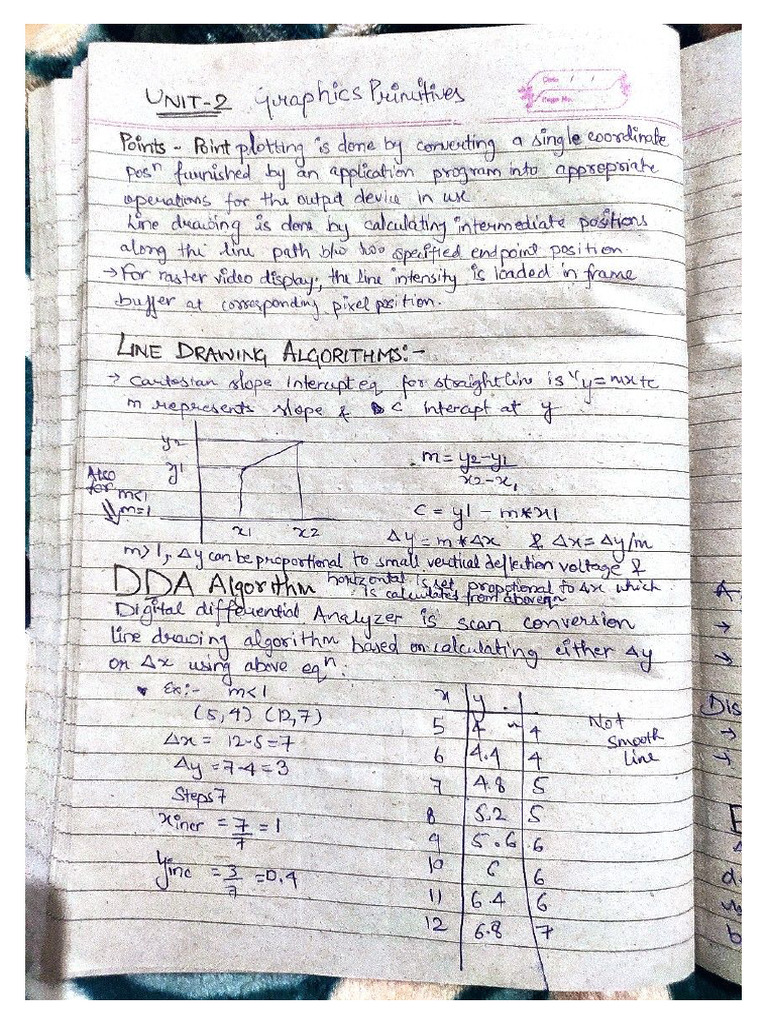 Date: / /
Page No.
UNIT-2 Graphics Primitives
Points - Point plotting is done by converting a single coordinate
posⁿ furnished by an application program into appropriate
operations for the output device in use
Line drawing is done by calculating intermediate positions
along the line path b/w two specified endpoint position.
→ For raster video display, the line intensity is loaded in frame
buffer at corresponding pixel position.
LINE DRAWING ALGORITHMS:-
→ Cartesian slope intercept eq for straight line is "y=mx+c
m represents slope & c intercept at y
y2
y1
x1 x2
Also
for
m<1
m=1
m = y2-y1
x2-x1
C = y1 - m*x1
Δy = m*Δx & Δx = Δy/m
m>1, Δy can be proportional to small vertical deflection voltage &
horizontal is set propotional to Δx which
is calculated from above eqn
DDA Algorithm
Digital differential Analyzer is scan conversion
line drawing algorithm based on calculating either Δy
or Δx using above eqⁿ.
Ex:- m<1
(5,4) (12,7)
Δx = 12-5=7
Δy = 7-4=3
Steps 7
xincr = 7/7 = 1
yinc = 3/7 = 0.4
x y
5 4 4
6 4.4 4
7 4.8 5
8 5.2 5
9 5.6 6
10 6 6
11 6.4 6
12 6.8 7
Not
smooth
line
A
→
→
Dis
→
→